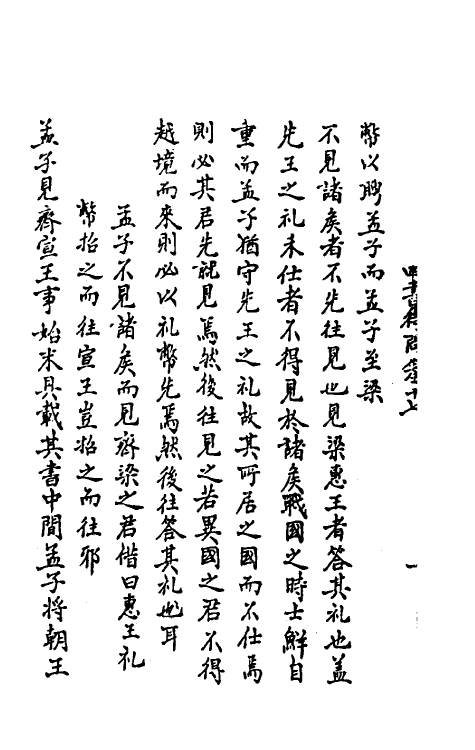 四書集問卷十七
一
幣以聘孟子而孟子至梁
不見諸矦者不先往見也見梁惠王者答其礼也盖
先王之礼未仕者不得見於諸矦戰國之時士鮮自
重而孟子猶守先王之礼故其所居之國而不仕焉
則必其君先就見焉然後往見之若異國之君不得
越境而來則必以礼幣先焉然後往答其礼耳
孟子不見諸矦而見齊梁之君偕曰惠王礼
幣招之而往宣王豈招之而往邪
孟子見齊宣王事始末具載其書中間孟子将朝王